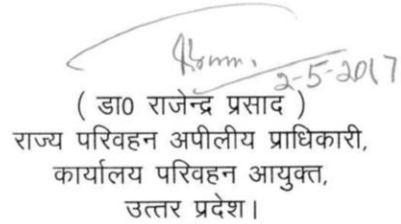 2-5-2017
( डा0 राजेन्द्र प्रसाद )
राज्य परिवहन अपीलीय प्राधिकारी,
कार्यालय परिवहन आयुक्त,
उत्तर प्रदेश।